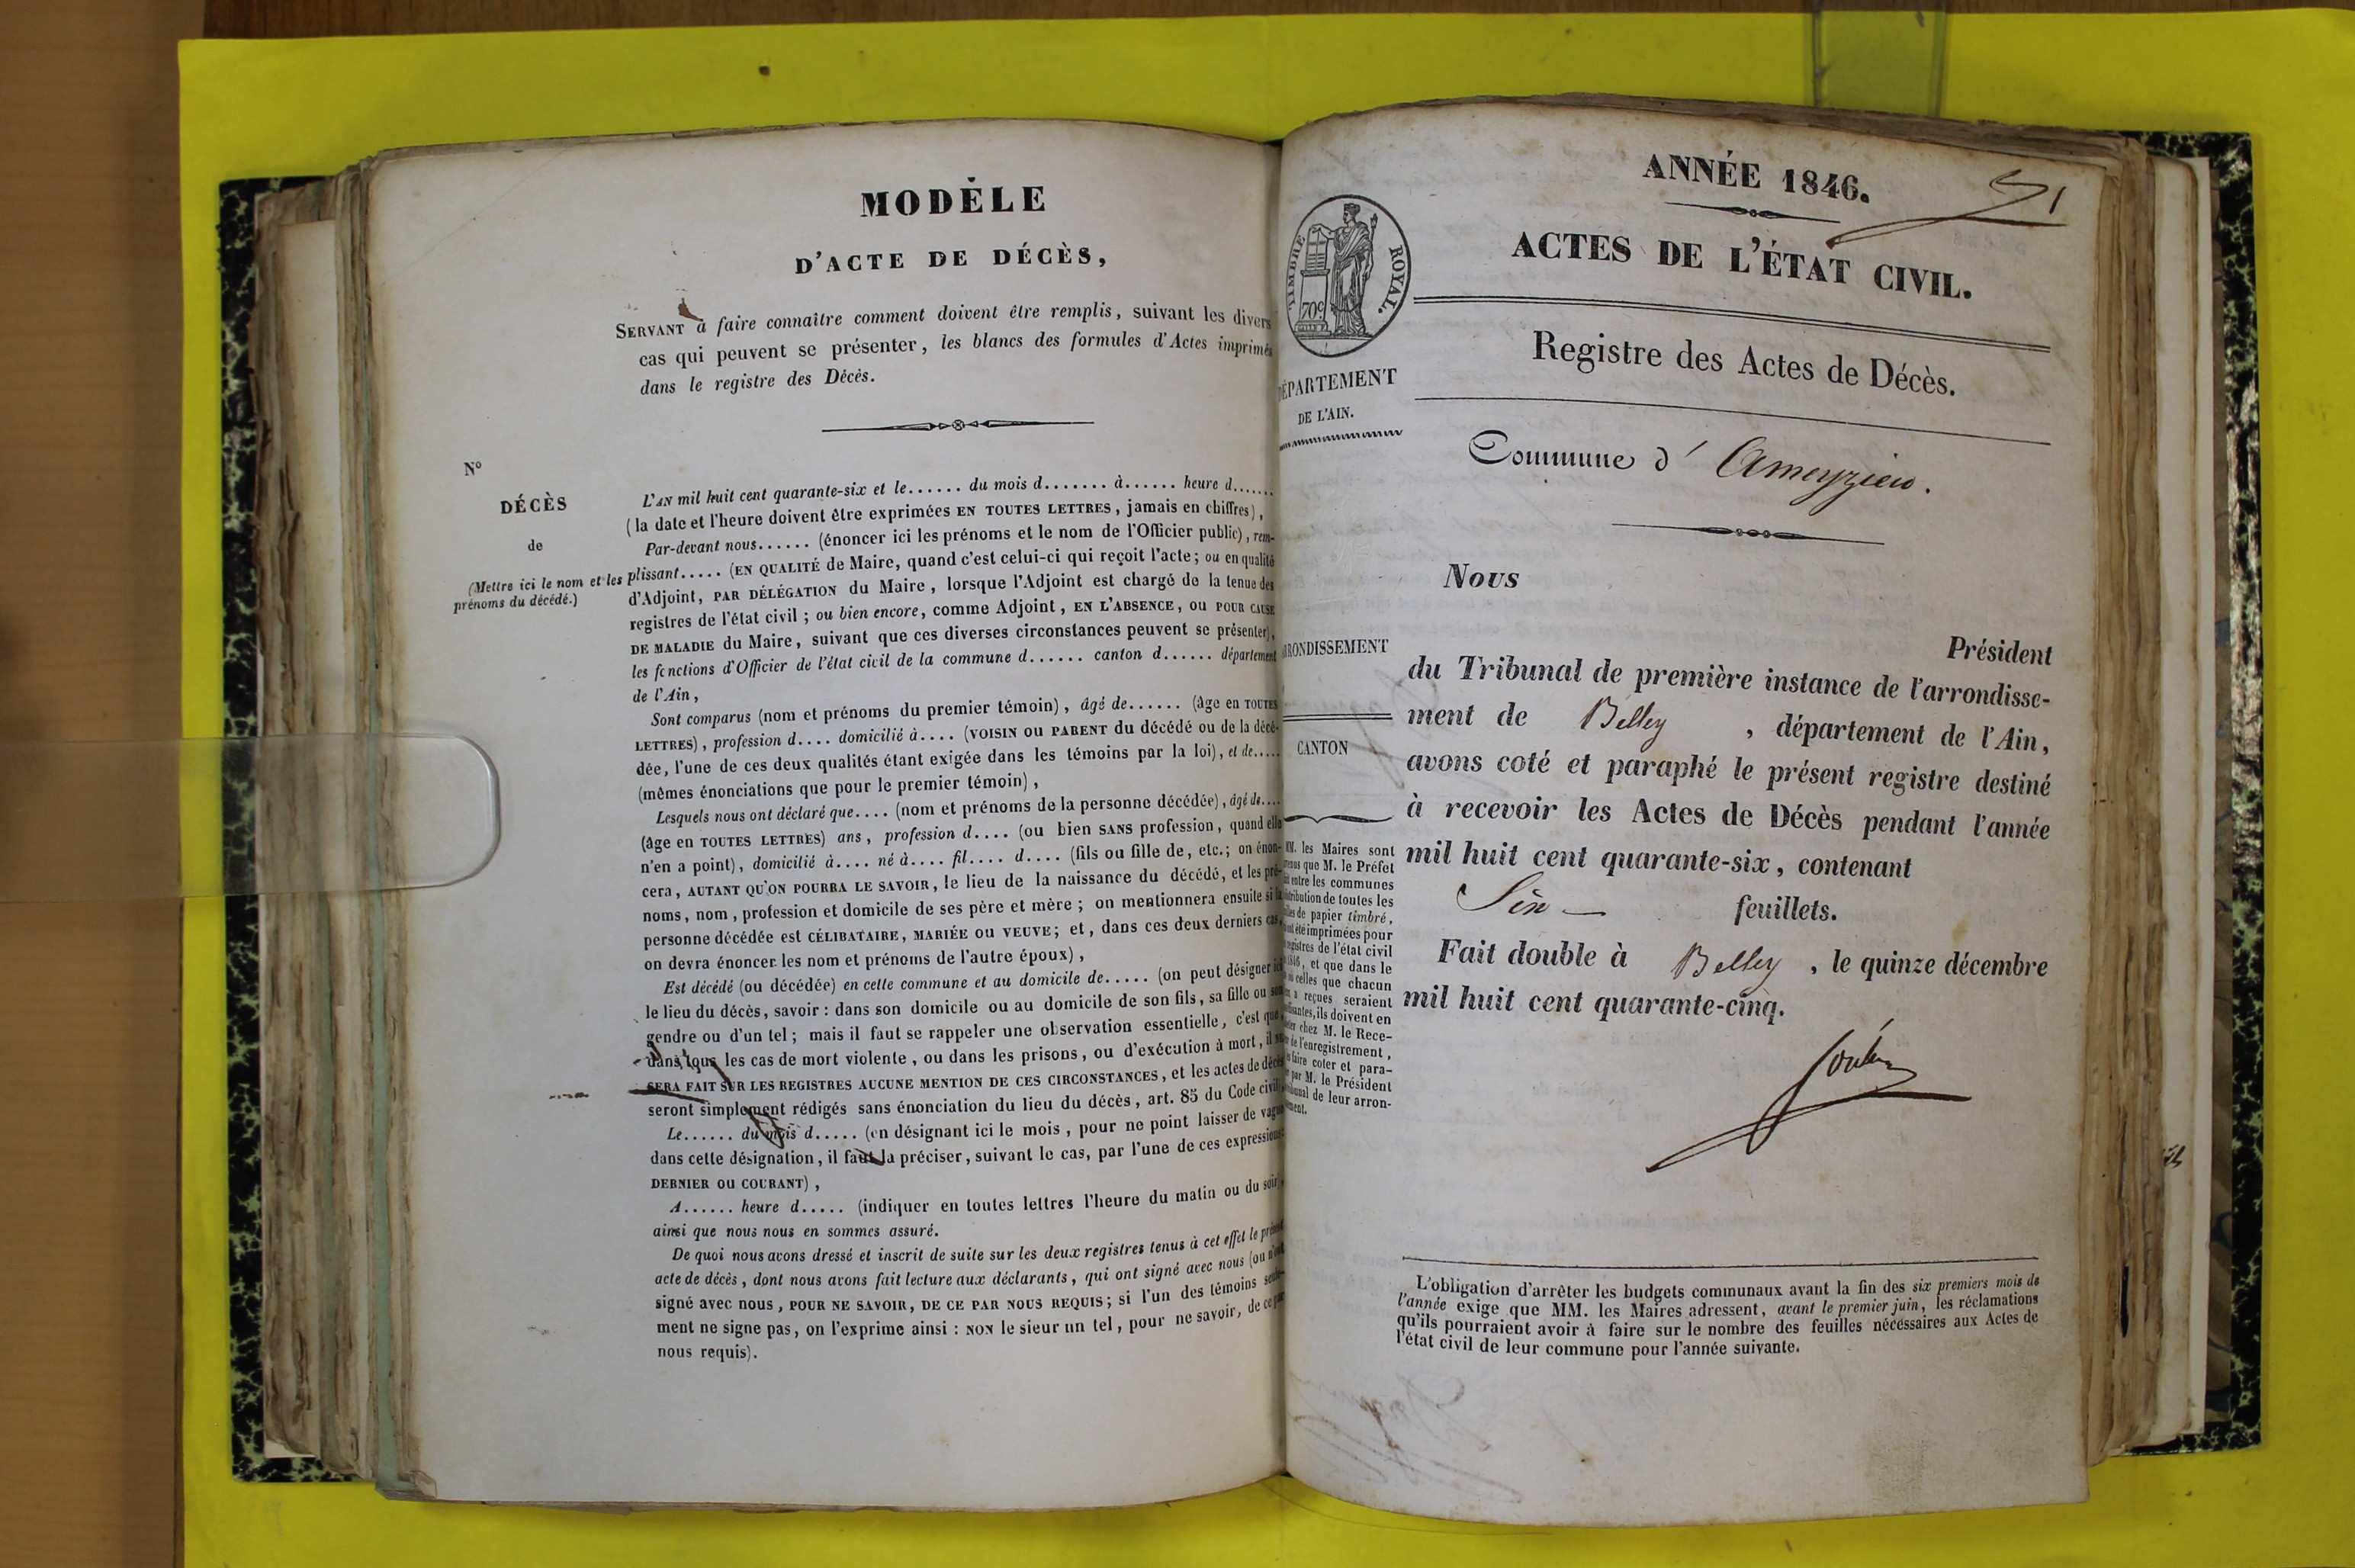 MODÈLE
D'ACTE DE DÉCÈS,
SERVANT à faire connaître comment doivent être remplis, suivant les divers
cas qui peuvent se présenter, les blancs des formules d'Actes imprimés
dans le registre des Décès.
N°
DÉCÈS
de
(Mettre ici le nom et les
prénoms du décédé.)
L'AN mil huit cent quarante-six et le...... du mois d....... à...... heure d.......
(la date et l'heure doivent être exprimées EN TOUTES LETTRES, jamais en chiffres),
Par-devant nous...... (énoncer ici les prénoms et le nom de l'Officier public), rem-
plissant..... (EN QUALITÉ de Maire, quand c'est celui-ci qui reçoit l'acte; ou en qualité
d'Adjoint, PAR DÉLÉGATION du Maire, lorsque l'Adjoint est chargé de la tenue des
registres de l'état civil; ou bien encore, comme Adjoint, EN L'ABSENCE, ou POUR CAUSE
DE MALADIE du Maire, suivant que ces diverses circonstances peuvent se présenter),
les fonctions d'Officier de l'état civil de la commune d...... canton d...... département
de l'Ain,
Sont comparus (nom et prénoms du premier témoin), âgé de...... (âge en TOUTES
LETTRES), profession d.... domicilié à.... (VOISIN ou PARENT du décédé ou de la décé-
dée, l'une de ces deux qualités étant exigée dans les témoins par la loi), et de.....
(mêmes énonciations que pour le premier témoin),
Lesquels nous ont déclaré que.... (nom et prénoms de la personne décédée), âgé de....
(âge en TOUTES LETTRES) ans, profession d.... (ou bien SANS profession, quand elle
n'en a point), domicilié à.... né à.... fil.... d.... (fils ou fille de, etc.; on énon-
cera, AUTANT QU'ON POURRA LE SAVOIR, le lieu de la naissance du décédé, et les pré-
noms, nom, profession et domicile de ses père et mère; on mentionnera ensuite si la
personne décédée est CÉLIBATAIRE, MARIÉE ou VEUVE; et, dans ces deux derniers cas,
on devra énoncer les nom et prénoms de l'autre époux),
Est décédé (ou décédée) en cette commune et au domicile de..... (on peut désigner ici
le lieu du décès, savoir: dans son domicile ou au domicile de son fils, sa fille ou son
gendre ou d'un tel; mais il faut se rappeler une observation essentielle, c'est que,
dans tous les cas de mort violente, ou dans les prisons, ou d'exécution à mort, il ne
SERA FAIT SUR LES REGISTRES AUCUNE MENTION DE CES CIRCONSTANCES, et les actes de décès
seront simplement rédigés sans énonciation du lieu du décès, art. 85 du Code civil)
Le...... du mois d..... (en désignant ici le mois, pour ne point laisser de vague
dans cette désignation, il faut la préciser, suivant le cas, par l'une de ces expressions:
DERNIER OU COURANT),
A...... heure d..... (indiquer en toutes lettres l'heure du matin ou du soir),
ainsi que nous nous en sommes assuré.
De quoi nous avons dressé et inscrit de suite sur les deux registres tenus à cet effet le présent
acte de décès, dont nous avons fait lecture aux déclarants, qui ont signé avec nous (ou n'ont
signé avec nous, POUR NE SAVOIR, DE CE PAR NOUS REQUIS; si l'un des témoins seule-
ment ne signe pas, on l'exprime ainsi: NON le sieur un tel, pour ne savoir, de ce par
nous requis).
ANNÉE 1846.
51
TIMBRE ROYAL.
70c
ACTES DE L'ÉTAT CIVIL.
Registre des Actes de Décès.
DÉPARTEMENT
DE L'AIN.
Commune d'Ameyzieu.
Nous
Président
du Tribunal de première instance de l'arrondisse-
ment de Belley, département de l'Ain,
avons coté et paraphé le présent registre destiné
à recevoir les Actes de Décès pendant l'année
mil huit cent quarante-six, contenant
Six feuillets.
Fait double à Belley, le quinze décembre
mil huit cent quarante-cinq.
ARRONDISSEMENT
CANTON
MM. les Maires sont
que M. le Préfet
entre les communes
distribution de toutes les
de papier timbré,
ont été imprimées pour
registres de l'état civil
1846, et que dans le
celles que chacun
a reçues seraient
ils doivent en
chez M. le Rece-
de l'enregistrement,
faire coter et para-
par M. le Président
tribunal de leur arron-
L'obligation d'arrêter les budgets communaux avant la fin des six premiers mois de
l'année exige que MM. les Maires adressent, avant le premier juin, les réclamations
qu'ils pourraient avoir à faire sur le nombre des feuilles nécessaires aux Actes de
l'état civil de leur commune pour l'année suivante.